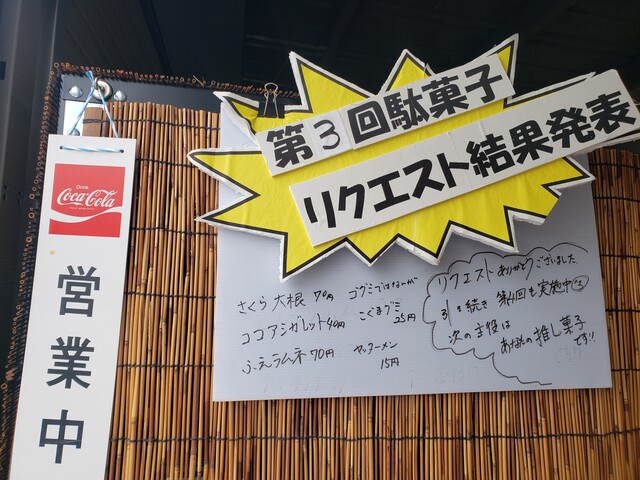 第3回駄菓子
リクエスト結果発表
Drink
Coca-Cola
営業中
さくら大根 70円
ココアシガレット 40円
ふえラムネ 70円
コグミではないが
こぐまグミ
25円
ヤッターメン
15円
リクエストありがとうございました
引き続き 第4回も実施中
次の主役は
あなたの推し菓子
です!!